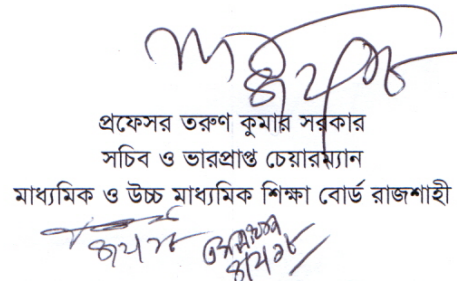 প্রফেসর তরুণ কুমার সরকার
সচিব ও ভারপ্রাপ্ত চেয়ারম্যান
মাধ্যমিক ও উচ্চ মাধ্যমিক শিক্ষা বোর্ড রাজশাহী